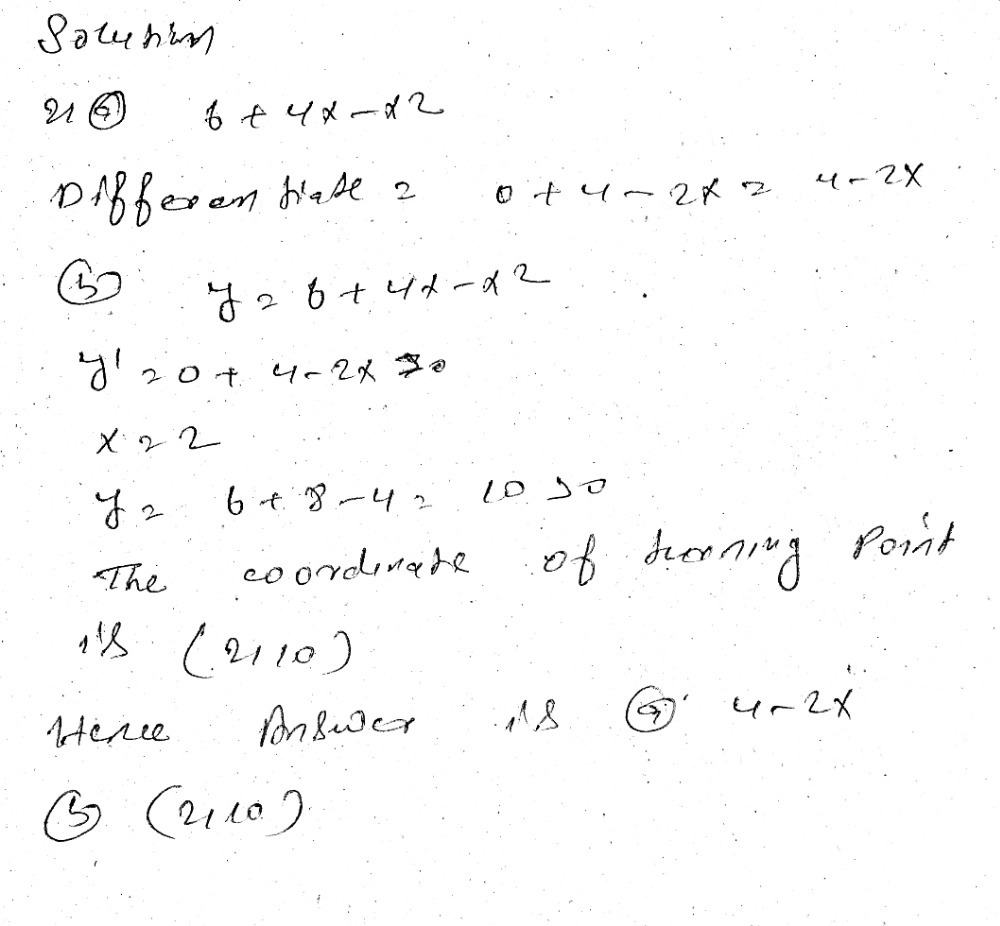 Solution
21 (a) 6 + 4x - x2
Differentiate = 0 + 4 - 2x = 4 - 2x
(b) y = 6 + 4x - x2
y' = 0 + 4 - 2x = 0
x = 2
y = 6 + 8 - 4 = 10 > 0
The coordinate of turning Point
is (2, 10)
Hence Answer is (a) 4 - 2x
(b) (2, 10)